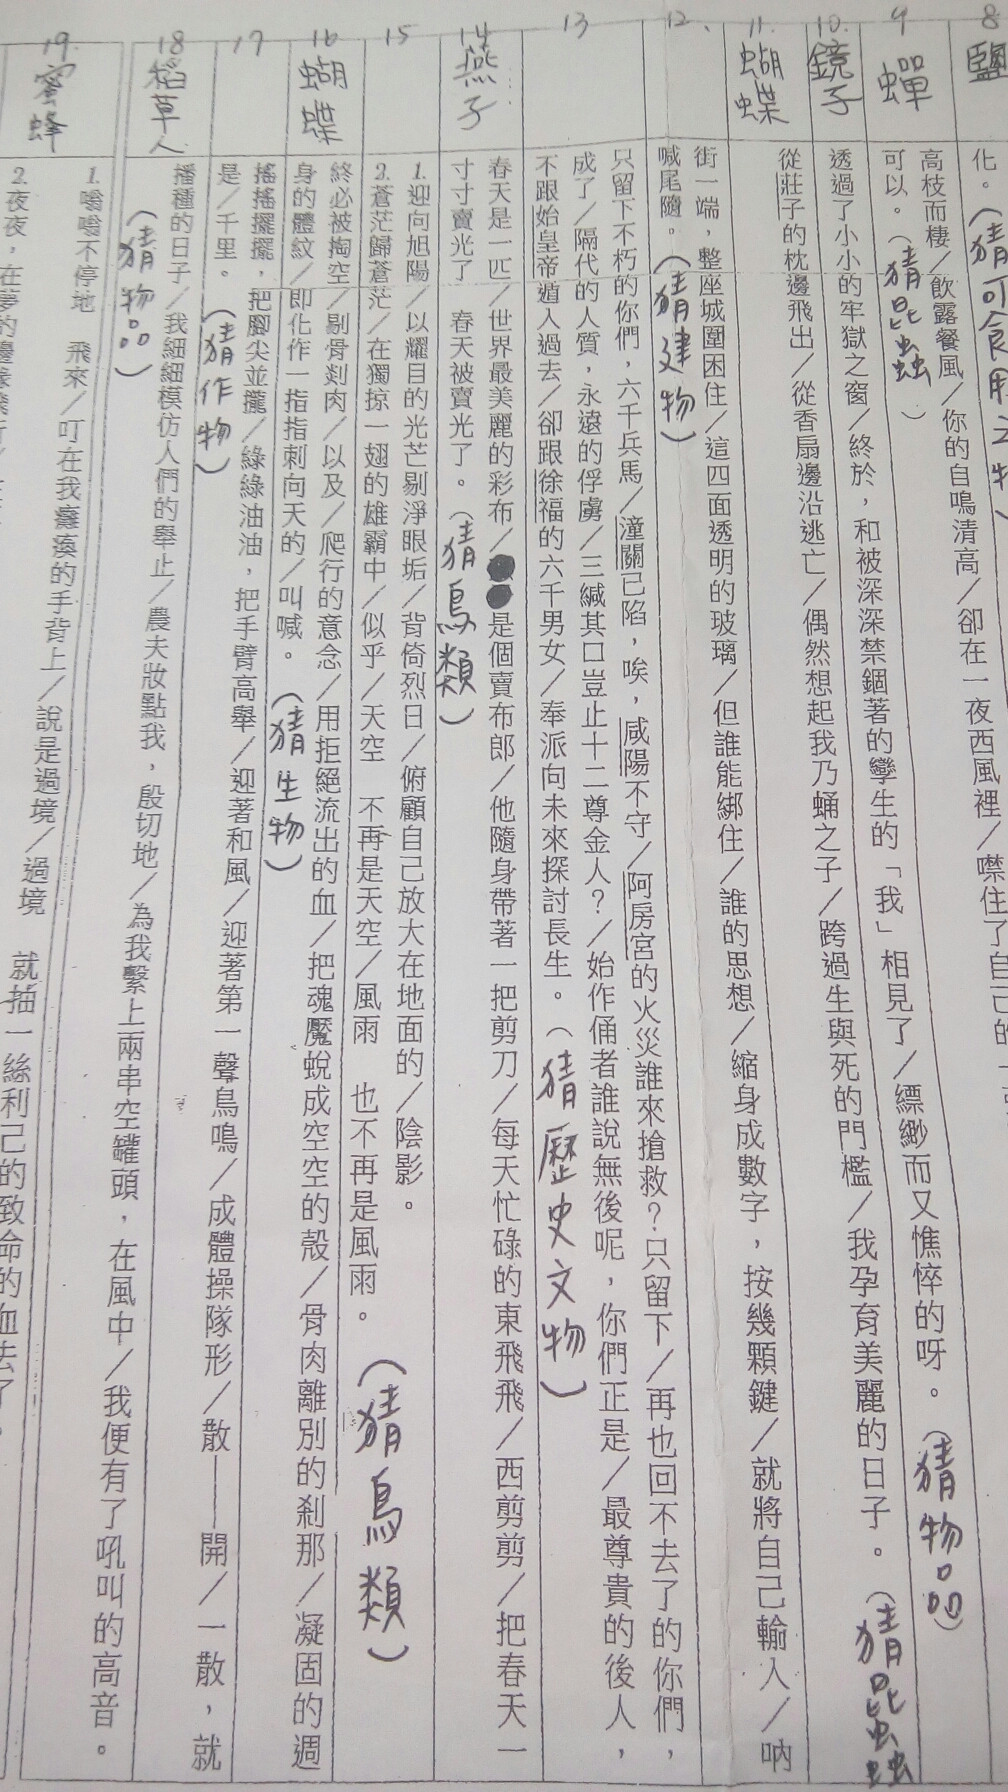 8.
鹽
化。（猜可食用之物）
9
蟬
高枝而棲／飲露餐風／你的自鳴清高／卻在一夜西風裡／噤住了自己的
可以。（猜昆蟲）
10.
鏡子
透過了小小的牢獄之窗／終於，和被深深禁錮著的孿生的「我」相見了／縹緲而又憔悴的呀。（猜物品）
11.
蝴蝶
從莊子的枕邊飛出／從香扇邊沿逃亡／偶然想起我乃蛹之子／跨過生與死的門檻／我孕育美麗的日子。（猜昆蟲
12.
街一端，整座城圍困住／這四面透明的玻璃／但誰能綁住／誰的思想／縮身成數字，按幾顆鍵／就將自己輸入／吶
喊尾隨。（猜建物）
13
只留下不朽的你們，六千兵馬／潼關已陷，唉，咸陽不守／阿房宮的火災誰來搶救？只留下／再也回不去了的你們，
成了／隔代的人質，永遠的俘虜／三緘其口豈止十二尊金人？／始作俑者誰說無後呢，你們正是／最尊貴的後人，
不跟始皇帝遁入過去／卻跟徐福的六千男女／奉派向未來探討長生。（猜歷史文物）
14
燕子
春天是一匹／世界最美麗的彩布／是個賣布郎／他隨身帶著一把剪刀／每天忙碌的東飛飛／西剪剪／把春天一
寸寸賣光了　春天被賣光了。（猜鳥類）
15
1.迎向旭陽／以耀目的光芒剔淨眼垢／背倚烈日／俯顧自己放大在地面的／陰影。
2.蒼茫歸蒼茫／在獨掠一翅的雄霸中／似乎／天空　不再是天空／風雨　也不再是風雨。（猜鳥類）
16
蝴蝶
終必被掏空／剔骨剡肉／以及／爬行的意念／用拒絕流出的血／把魂魘蛻成空空的殼／骨肉離別的剎那／凝固的週
身的體紋／即化作一指指刺向天的／叫喊。（猜生物）
17
搖搖擺擺，把腳尖並攏／綠綠油油，把手臂高舉／迎著和風／迎著第一聲鳥鳴／成體操隊形／散——開／一散，就
是／千里。（猜作物）
18
稻草人
播種的日子／我細細模仿人們的舉止／農夫妝點我，殷切地／為我繫上兩串空罐頭，在風中／我便有了吼叫的高音。
（猜物品）
19.
蜜蜂
1.嗡嗡不停地　飛來／叮在我癱瘓的手背上／說是過境／過境　就抽一絲利己的致命的血去了。
2.夜夜，在夢的邊緣飛行／